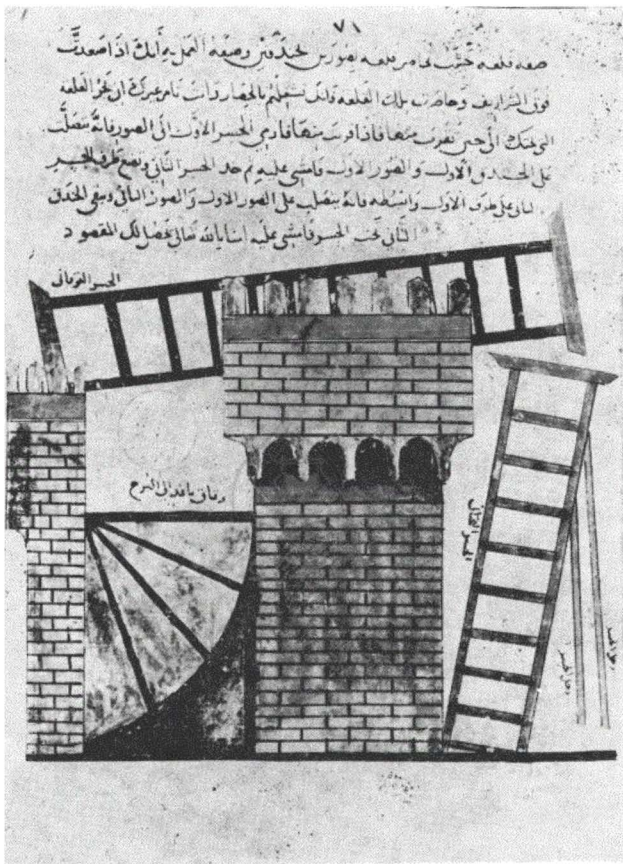 ٧١
صفه قلعه خشب تحامر قلعه بصورين بخندقين وصفة العمل به أنك اذا صعدت
فوق الشراريف وحاصرت تلك القلعه فانك تستعلم بالحصار وانت تامر غيرك ان يجر القلعه
التى تحتك الى حين تقرب منها فاذا قربت منها فارمى الجسر الاول الى الصور فانه يتصلب
على الخندق الاول والصور الاول فامشى عليه ثم خد الجسر الثانى وتضع طرف الجسر
الثانى على طرف الاول وابسطه فانه يتصلب على الصور الاول والصور الثانى ويبقى الخندق
الثانى تحت الجسر فامشى عليه انشا الله تعالى يحصل لك المقصود
الجسر الفوقانى
الجسر الثانى